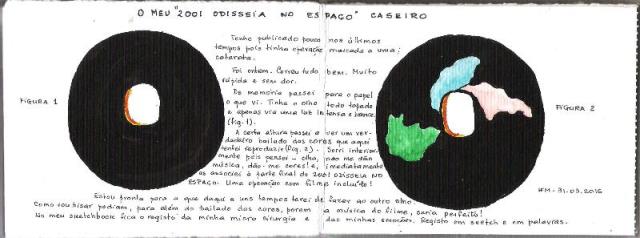 O MEU "2001 ODISSEIA NO ESPAÇO" CASEIRO
Tenho publicado pouco nos últimos
tempos pois tinha operação marcada a uma
catarata.
Foi ontem. Correu tudo bem. Muito
rápida e sem dor.
De memória passei para o papel
o que vi. Tinha o olho todo tapado
e apenas via uma luz intensa e branca.
(Fig. 1).
A certa altura passei a ver um ver-
dadeiro bailado das cores que aqui
tentei reproduzir (Fig. 2). Sorri interior-
mente pois pensei - olha, não me dão
música, dão-me cores! e, imediatamente
as associei à parte final do 2001 ODISSEIA NO
ESPAÇO. Uma operação com filme incluído!
Estou pronta para o que daqui a uns tempos terei de fazer ao outro olho.
Como sou bisar podiam, para além do bailado das cores, porem a música do filme, seria perfeito!
No meu sketchbook fica o registo da minha micro cirurgia e das minhas emoções. Registo em sketch e em palavras.
FIGURA 1
FIGURA 2
31.03.2016